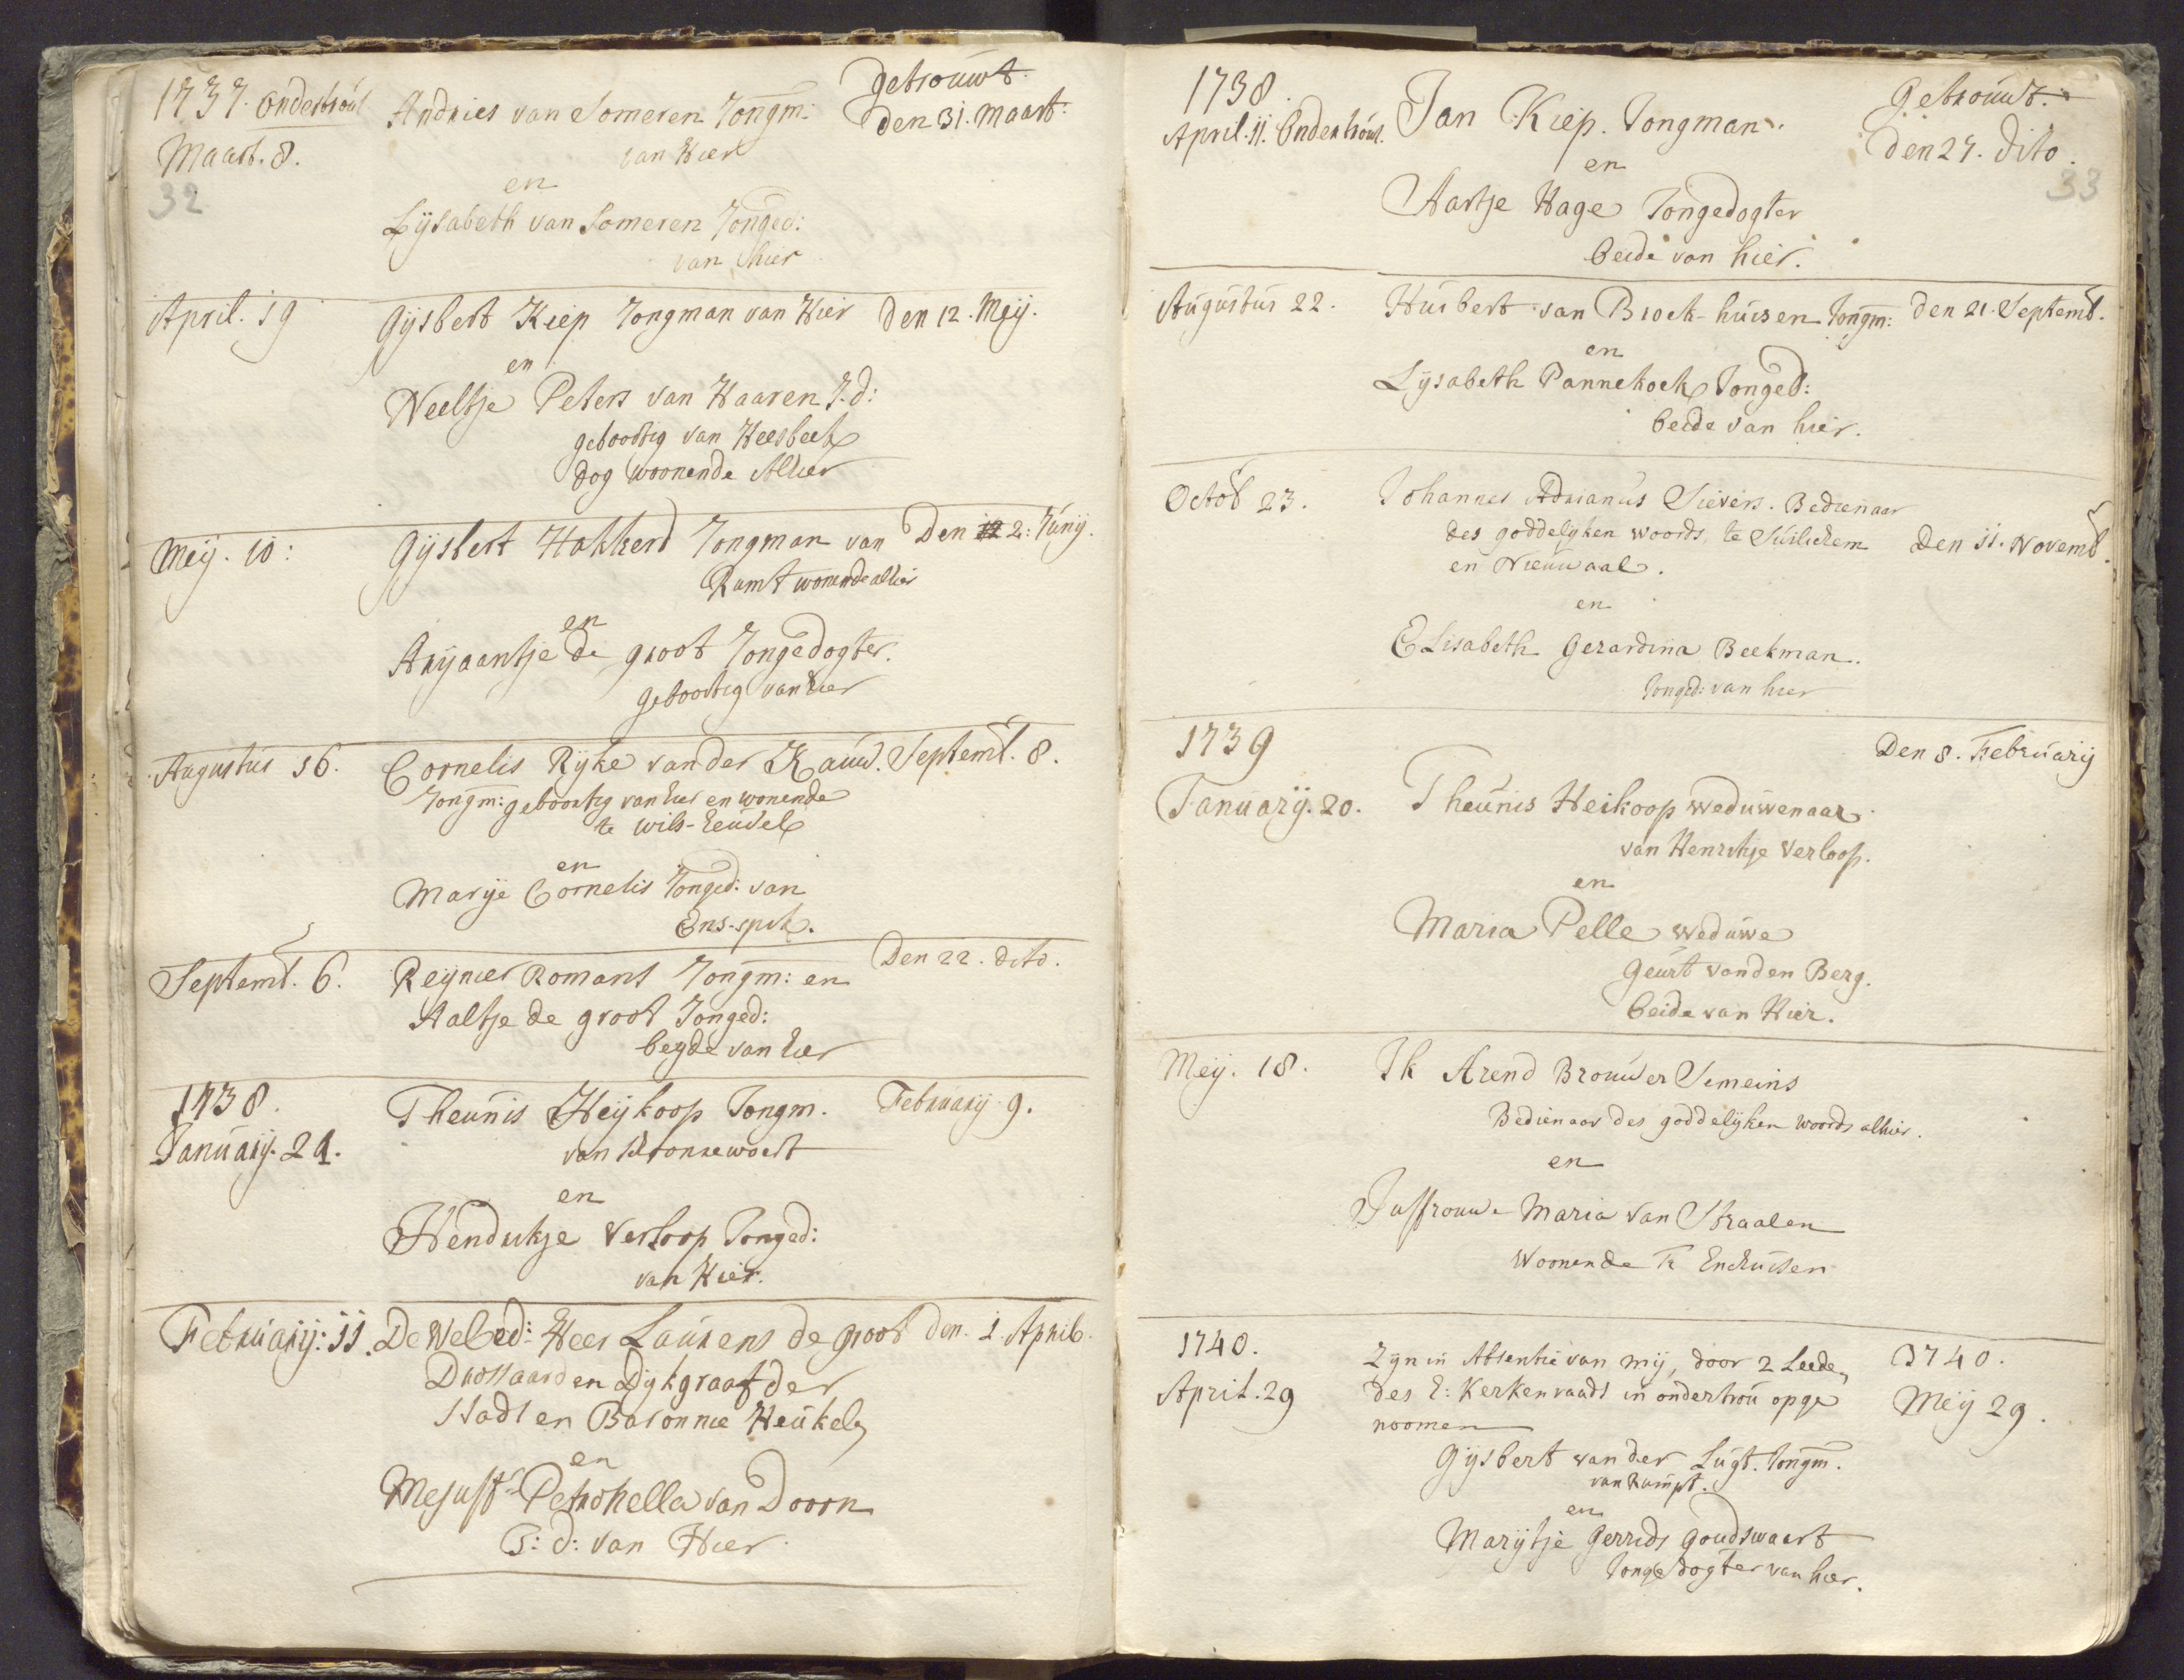 1737. Ondertrout
Maart. 8.
32
Andries van Someren Jongm:
van Hier
en
Lijsabeth van Someren Jonged:
van hier
getrouwt.
den 31. Maart.
April. 19
Gijsbert Kiep Jongman van Hier
den 12. Meij.
en
Neeltje Peters van Haaren J.d:
geboortig van Heesbeek
dog woonende Alhier
Meij. 10:
Gijsbert Hakkerd Jongman van
Den 2: Junij.
Rumt wonende alhier
en
Arijaantje de groot Jongedogter.
geboortig van hier
Augustus 16.
Cornelis Rijke van der Kauw.
Septemb. 8.
Jongm: geboortig van hier en wonende
te
en
Marije Cornelis Jonged: van
Ens-spik.
Septemb. 6.
Reijnier Romans Jongm: en
Den 22. dito.
Aaltje de groot Jonged:
beyde van hier
1738.
Januarij. 24.
Theunis Heijkoop Jongm.
Februarij 9.
van
en
Hendrikje Verloop Jonged:
van Hier.
Februarij: 11.
De Weled: Heer Laurens de groot
den. 1. April.
Drossaard en Dijkgraaf der
Stadt en Baronnie Heukel
en
Mejuffr Petronella van Doorn
J: d: van Hier.
1738.
April. 11. Ondertrout.
Jan Kiep. Jongman.
en
Aartje Hage Jongedogter
beide van hier.
Getrouwt.
den 27. dito.
33
Augustus 22.
Huibert van Broek-huisen Jongm:
den 21. Septemb.
en
Lijsabeth Pannekoek Jonged:
beide van hier.
Octob 23.
Johannes Adrianus Sievers. Bedienaar
des goddelijken woords, te Suilichem
den 11. Novemb.
en Nieuwaal.
en
Elisabeth Gerardina Beekman.
Jonged: van hier
1739
Januarij. 20.
Den 8. Februarij
Theunis Heikoop weduwenaar
van Henrikje Verloop.
en
Maria Pelle weduwe
Geurt van den Berg.
beide van Hier.
Meij. 18.
Ik Arend Brouwer Semeins
Bedienaar des goddelijken woords alhier.
en
Juffrouw Maria van Straalen
Woonende te Enchuisen
1740.
April. 29
Zijn in Absentie van mij, door 2 Leede
des E: Kerkenraads in ondertrou opge
noomen
1740.
Meij 29.
Gijsbert van der Lugt. Jongm.
van Rumpt.
en
Marijtje Gerrids Goudswaart
Jonge dogter van hier.